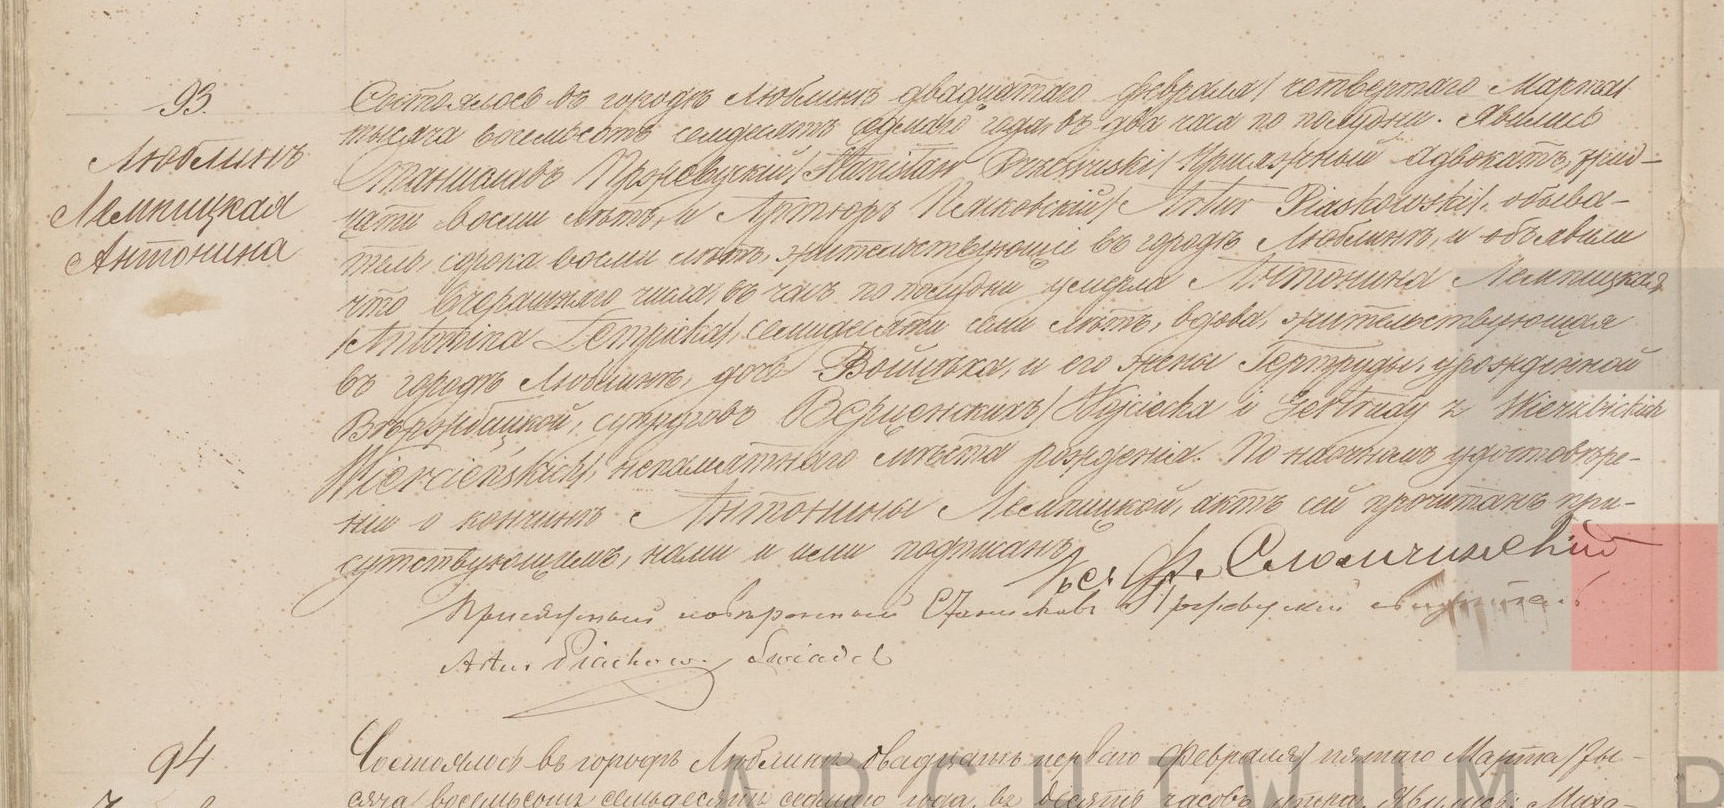 93.
Люблинъ
Лемпицкая
Антонина
Состоялось въ городѣ Люблинѣ двадцатаго февраля/ четвертаго Марта/
тысяча восемьсотъ семдесятъ седмаго года, въ два часа по полудни. Явились
Станиславъ Пржевуский/ Stanisław Przewuski/ Присяжный Адвокатъ, трид-
цати восми лѣтъ, и Артюръ Пясковскій/ Artur Piaskowski/, обыва-
тель, сорока восми лѣтъ, жительствующіе въ городѣ Люблинѣ, и объявили
что вчерашняго числа въ часъ по полудни умерла Антонина Лемпицкая
/Antonina Łempicka/, семидесяти семи лѣтъ, вдова, жительствующая
въ городѣ Люблинѣ, дочь Войцѣха, и его жены Гертруды, урожденной
Вѣржбицкой, супруговъ Верценскихъ/ Wojciecha i Gertrudy z Wierzbickich
Wiercieńskich/, непамятнаго мѣста рожденія. По наочномъ удостовѣре-
ніи о кончинѣ Антонины Лемпицкой, актъ сей прочитанъ при-
сутствующимъ, нами и ими подписанъ.
Кс. Ф.
Присяжный повѣренный Станиславъ свидѣтель
Artur Piaskow. świadek
94
Состоялось въ городѣ Люблинѣ двадцать перваго Февраля/ пятаго Марта/ ты-
сяча восемьсотъ семьдесятъ седмаго года, въ десять часовъ утра. Явились:
ARCHIWUM P